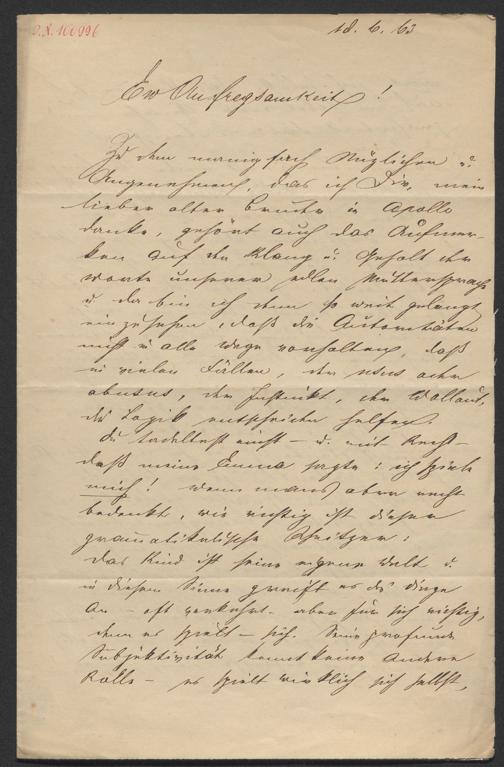 I.N. 166996
18. 6. 63
Ew Aufregsamkeit!
Zu dem manigfach Nüzlichen u.
Angenehmen, das ich Dir, mein
lieber alter Bruder in Apollo
danke, gehört auch das Aufmer-
ken auf den Klang u. Gehalt der
Worte unserer edlen Muttersprache
u. da bin ich denn so weit gelangt
einzusehen, daß die Autoritäten
nicht in alle Wege vorhalten, daß
in vielen Fällen, der usus oder
abusus, der Instinkt, der Wollaut,
die Logik entscheiden helfen.
Du tadeltest einst – u. mit Recht –
daß meine Emma sagte: ich spiele
mich! Wenn man's aber recht
bedenkt, wie richtig ist dieser
gramatikalische Schnitzer:
Das Kind ist seine eigene Welt u.
in diesem Sinne greift es die Dinge
an – oft verkehrt. aber für sich richtig,
denn es spielt – sich. Seine profunde
Subjektivität kennt keine andere
Rolle – es spielt wirklich sich selbst,